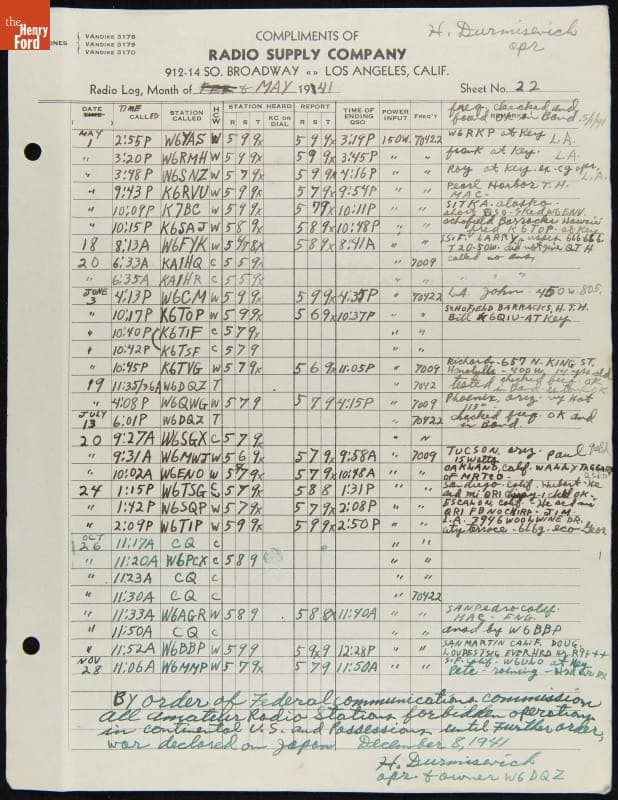 the Henry Ford
ONES
VANDIKE 3178
VANDIKE 3179
VANDIKE 3170
COMPLIMENTS OF
H. Durmisevich
opr
RADIO SUPPLY COMPANY
912-14 SO. BROADWAY «» LOS ANGELES, CALIF.
Radio Log, Month of MAY 1941 Sheet No. 22
DATE TIME CALLED STATION CALLED STATION HEARD R S T KC OR DIAL REPORT R S T TIME OF ENDING QSO POWER INPUT FREQ'Y freq. checked and found OK in Band 5/1/41
MAY 1 2:55P W6YAS W 599x 599x 3:19P 150W. 7042Z W6RKP at Key L.A.
" 3:20P W6RMH W 599x 599x 3:45P " " frank at Key. L.A.
" 3:48P W6SNZ W 579x 599x 4:16P " " Roy at Key. ex-cg opr. L.A.
" 9:43P K6RVU W 599x 579x 9:54P " " Pearl Harbor T.H. MAC.
" 10:09P K7BC W 599x 579x 10:11P " " SITKA. alaska
" 10:15P K6SAJ W 589x 589x 10:48P " " Schofield Barracks Hawaii fred K6TOP at Key
18 8:13A W6FYK W 578x 589x 8:41A " " S.F. LARRY
20 6:33A KA1HQ C 559x " 7009 called no ans.
" 6:35A KA1HR C 559x " " "
JUNE 3 4:13P W6CM W 599x 599x 4:35P " 7042Z L.A. John 450W 805.
" 10:17P K6TOP W 599x 569x 10:37P " " SCHOFIELD BARRACKS, H.T.H. Bill K6QIU-AT Key
" 10:40P K6TIF C 579x " "
" 10:42P K6TSF C 579 " "
" 10:45P K6TVG W 579x 569x 11:05P " 7009 Richard-657 N. KING ST. Honolulu - 400W 14 yrs old
19 11:35/36A W6DQZ T " 7042 tested checked freq. OK
" 4:08P W6QWG W 579 579 4:15P " 7009 Phoenix, ariz. vy Hot 115°
JULY 13 6:01P W6DQZ T 7042Z checked freq. OK and in Band.
20 9:27A W6SGX C 579x " "
" 9:31A W6MWJ W 569x 579x 9:58A " 7009 TUCSON, ariz. Paul 15 watts
" 10:02A W6ENO W 579x 579x 10:48A " " OAKLAND, Calif. WALLY TAGGART OF MRTED
24 1:15P W6TSG C 579x 588 1:31P " " San diego-calif. Hubert. He
" 1:42P W6SQP W 579x 579x 2:08P " " ESCALON calif
" 2:09P W6TIP W 599x 599x 2:50P " " L.A. WOOLWINE DR. city terrace
OCT 26 11:17A CQ C " "
" 11:20A W6PCX C 589 " "
" 11:23A CQ C " "
" 11:30A CQ C " 7042Z
" 11:33A W6AGR W 589 588x 11:40A " " SAN Pedro calif. MAC - ENG.
" 11:50A CQ C " " ansd by W6BBP
" 11:52A W6DBP W 599 599x 12:28P " " SAN MARTIN CALIF. DOUG. LOUDEST SIG EVER HRD
NOV 28 11:06A W6MMP W 579x 579 11:50A " " S.F. Calif. W6ULO at Key Pete
By order of Federal Communications Commission
all amateur Radio Stations forbidden operation
in continental U.S. and Possessions until further order,
war declared on Japan December 8, 1941
H. Durmisevich
opr. & owner W6DQZ